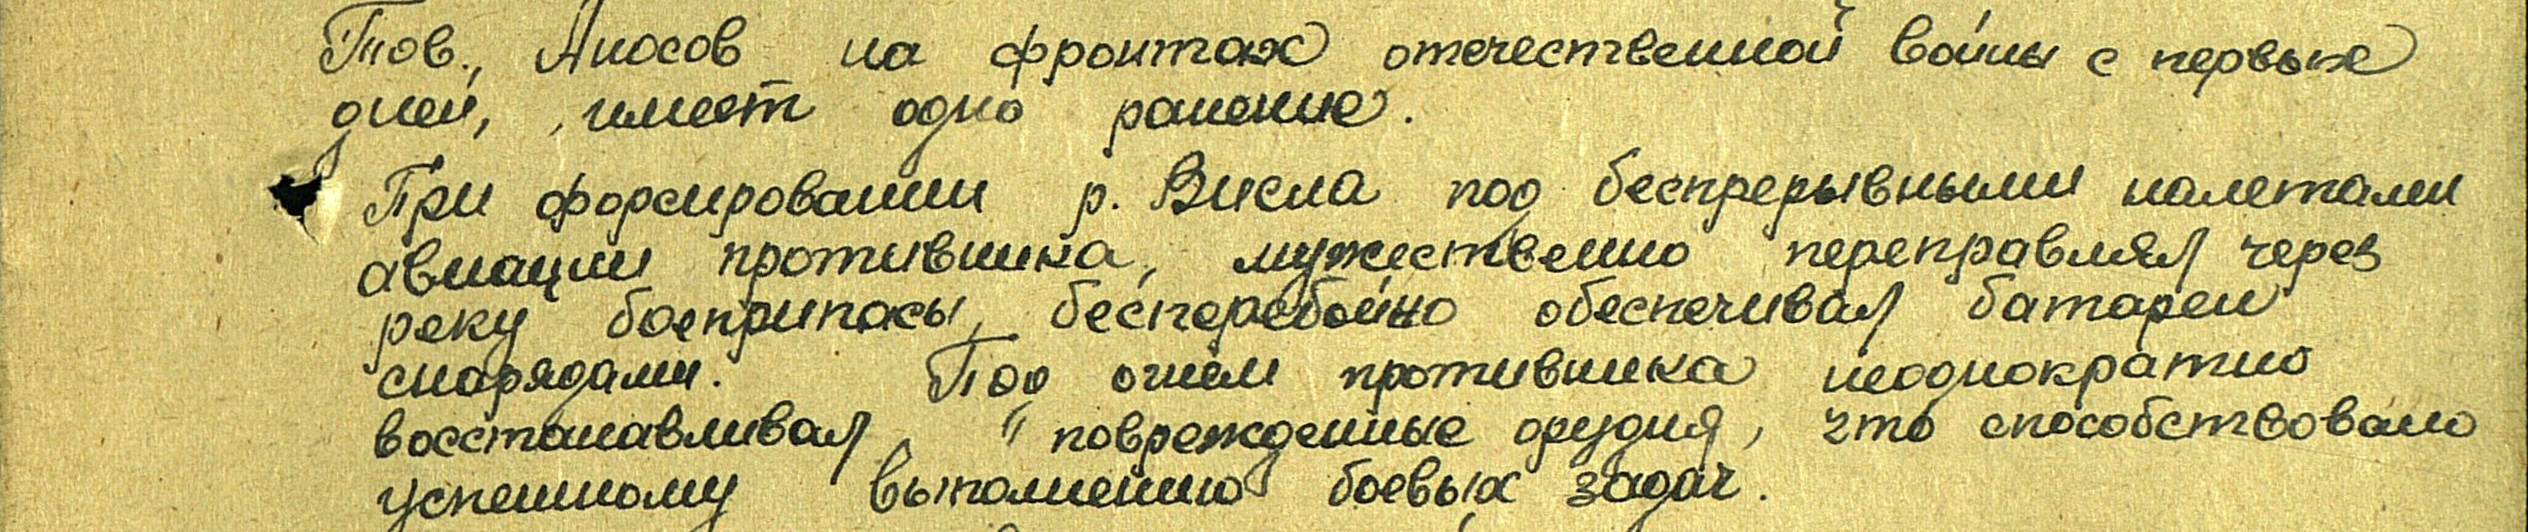 Тов., Аносов на фронтах отечественной войны с первых
дней, имеет одно ранение.
При форсировании р. Висла под беспрерывными налетами
авиации противника, мужественно переправлял через
реку боеприпасы, бесперебойно обеспечивал батареи
снарядами. Под огнём противника неоднократно
восстанавливал поврежденные орудия, что способствовало
успешному выполнению боевых задач.